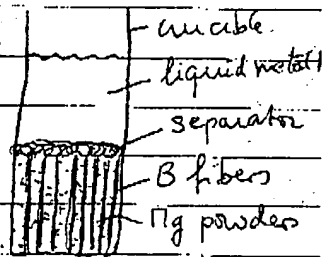 crucible
liquid metal
separator
B fibers
Mg powders